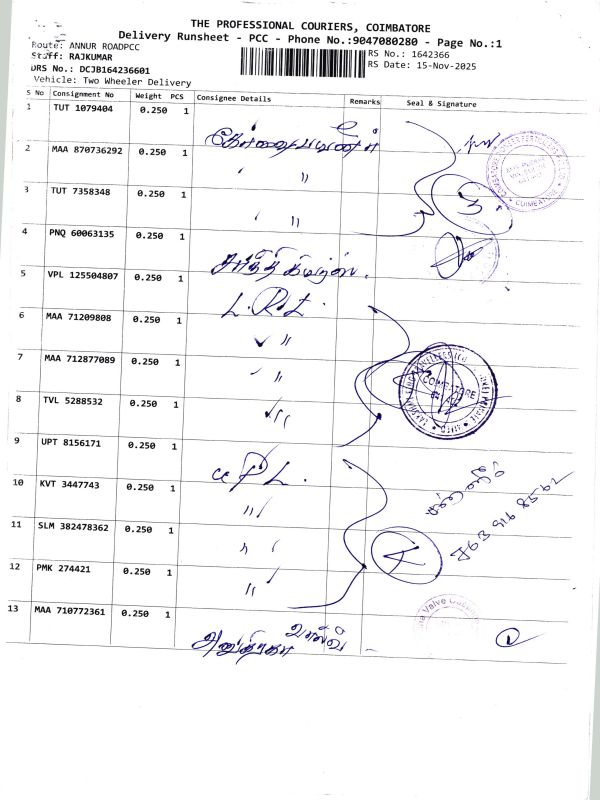 THE PROFESSIONAL COURIERS, COIMBATORE
Delivery Runsheet - PCC - Phone No.:9047080280 - Page No.:1
Route: ANNUR ROADPCC
RS No.: 1642366
Staff: RAJKUMAR
RS Date: 15-Nov-2025
DRS No.: DCJB164236601
Vehicle: Two Wheeler Delivery
S No Consignment No Weight PCS Consignee Details Remarks Seal & Signature
1 TUT 1079404 0.250 1
2 MAA 870736292 0.250 1 〃
3 TUT 7358348 0.250 1 〃
4 PNQ 60063135 0.250 1
5 VPL 125504807 0.250 1 L.R.L.
6 MAA 71209808 0.250 1 〃
7 MAA 712877089 0.250 1 〃
8 TVL 5288532 0.250 1 〃
9 UPT 8156171 0.250 1 U P L.
10 KVT 3447743 0.250 1 〃
11 SLM 382478362 0.250 1 〃
12 PMK 274421 0.250 1 〃
13 MAA 710772361 0.250 1
COIMBATORE
COIMBATORE
5
4
1